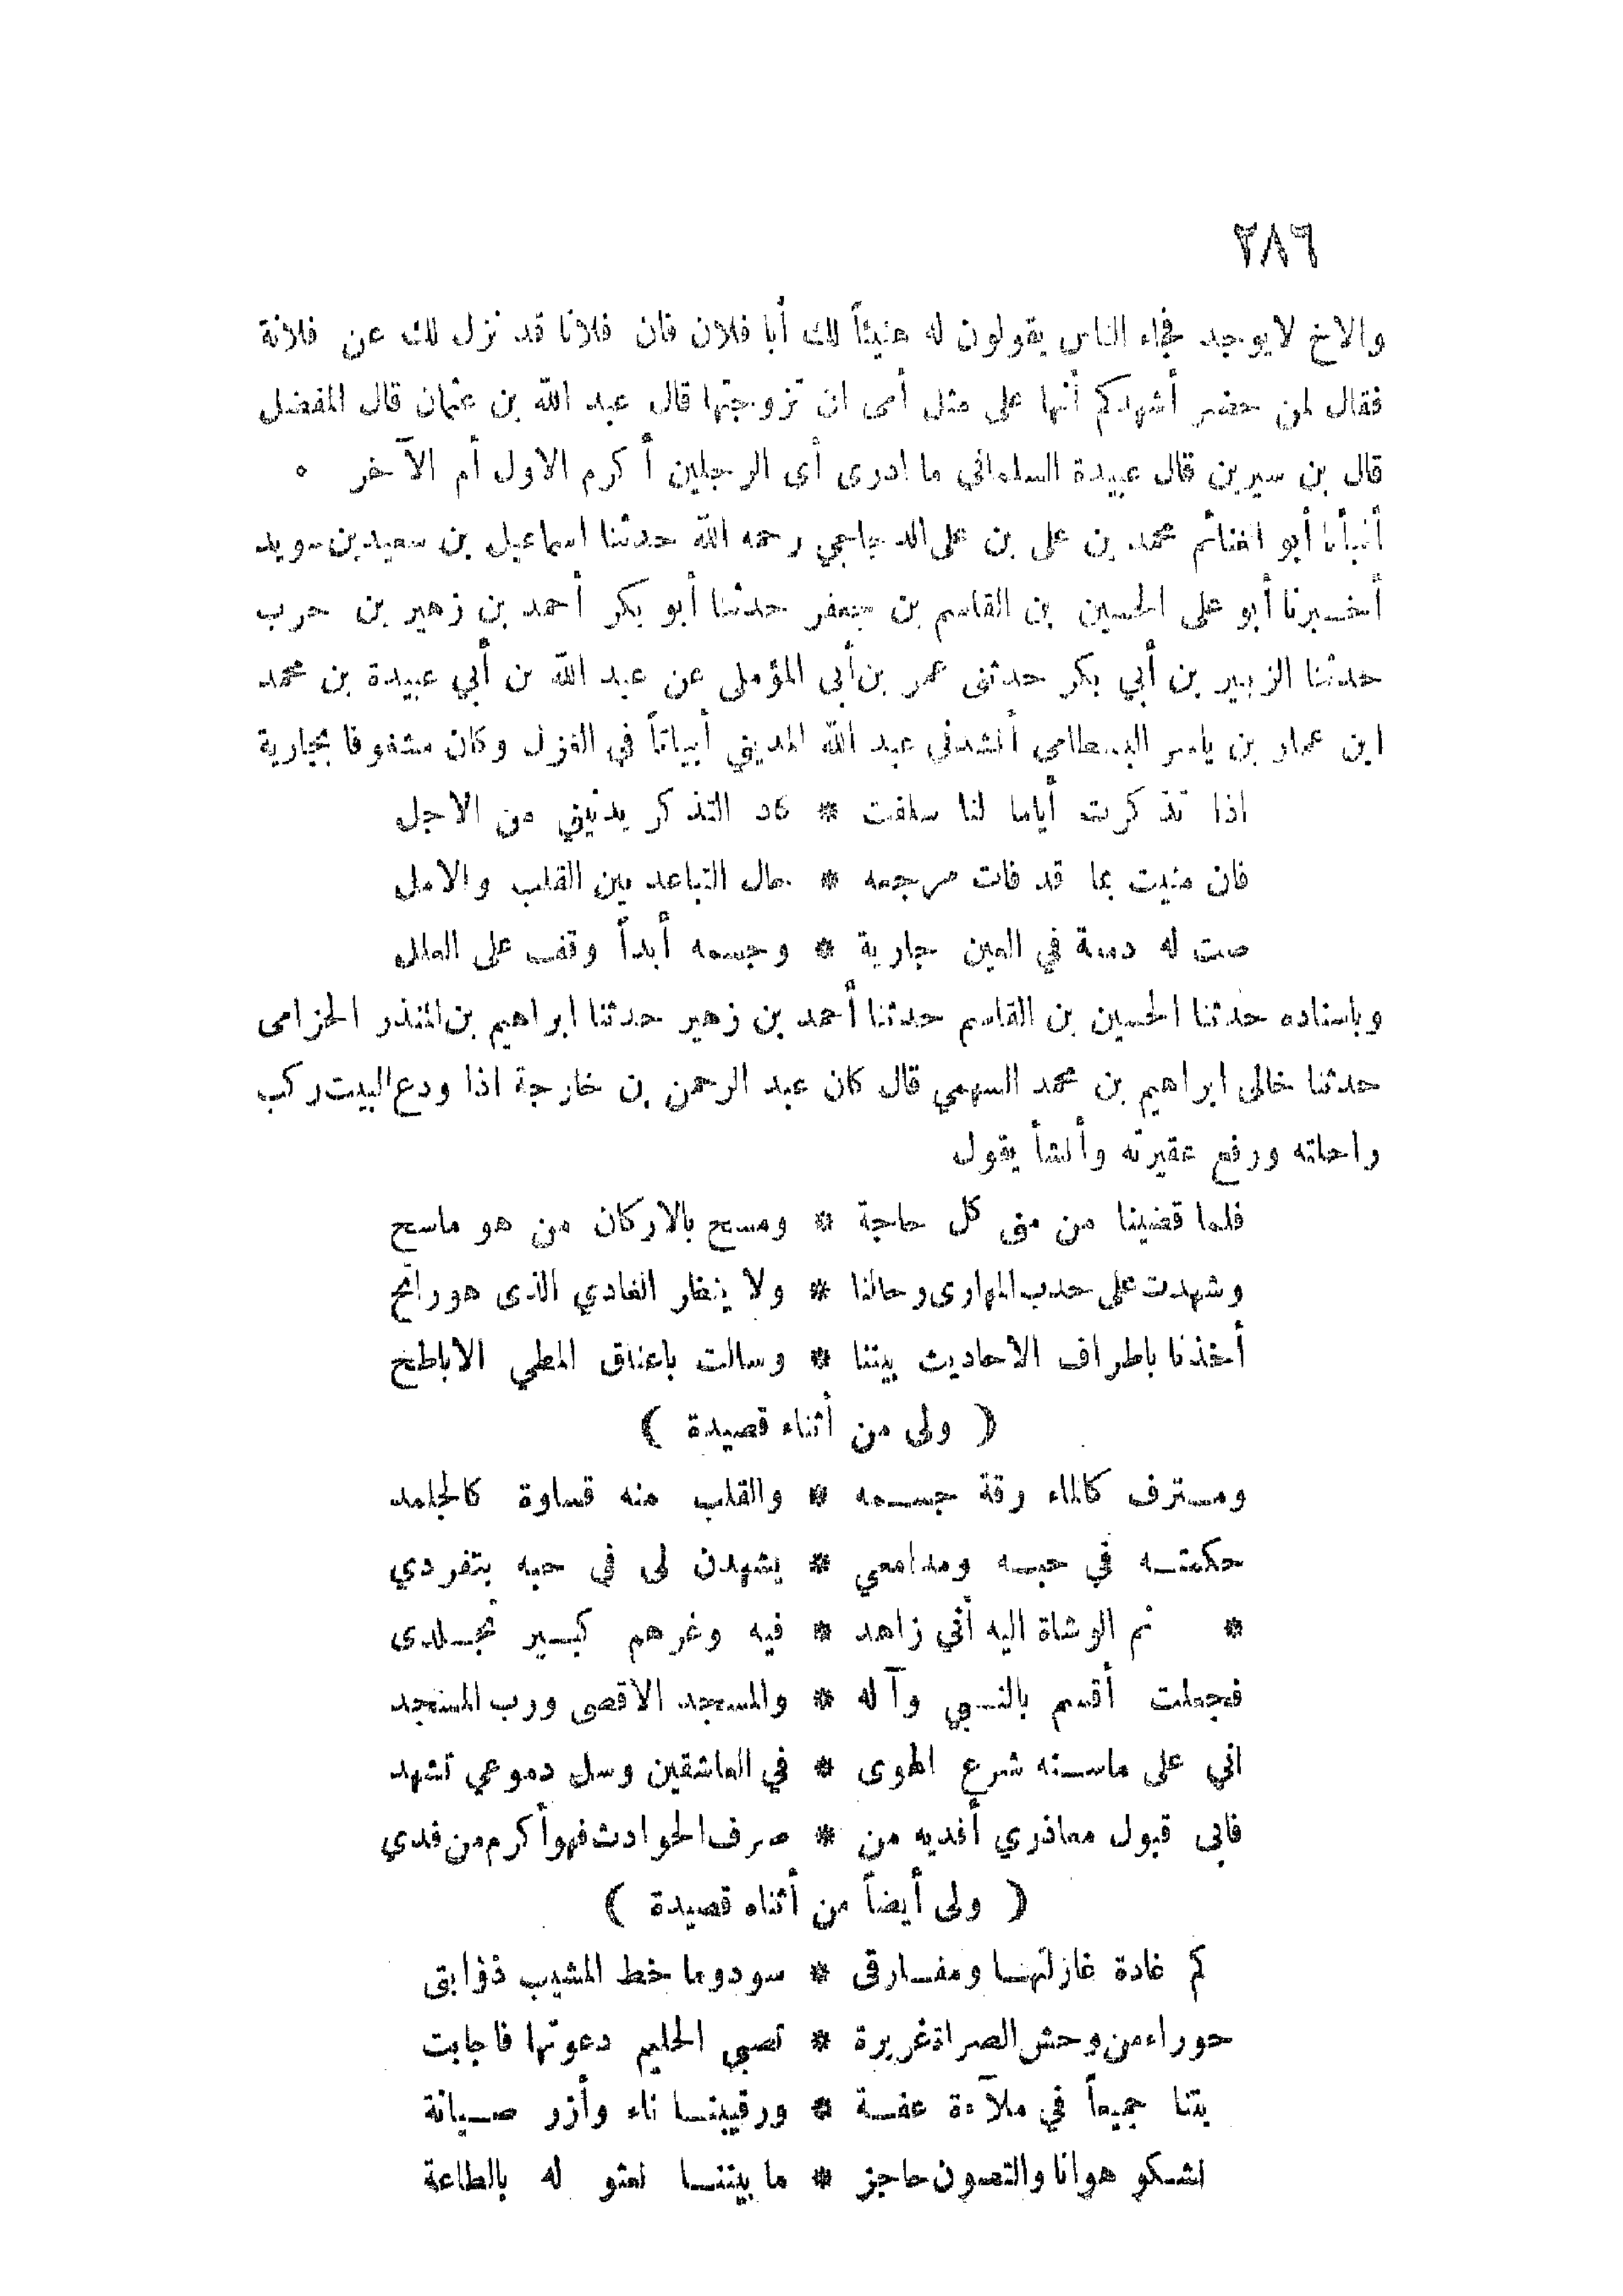 ٢٨٦
والاخ لا يوجد فجاء الناس يقولون له هنيئاً لك أبا فلان فان فلانا قد نزل لك عن فلانة
فقال لمن حضر أشهدكم أنها على مثل أمى ان تزوجتها قال عبد الله بن عثمان قال المفضل
قال بن سيرين قال عبيدة السلمانى ما ادرى أى الرجلين أكرم الاول أم الآخر ٠
أنبأنا أبو الغنائم محمد بن على بن على الدجاجي رحمه الله حدثنا اسماعيل بن سعيد بن سويد
أخبرنا أبو على الحسين بن القاسم بن جعفر حدثنا أبو بكر أحمد بن زهير بن حرب
حدثنا الزبير بن أبي بكر حدثنى عمر بن أبى المؤملى عن عبد الله بن أبي عبيدة بن محمد
ابن عمار بن ياسر البسطامى أنشدنى عبد الله المدينى أبياتاً في الغزل وكان مشغوفا بجارية
اذا تذكرت أياما لنا سلفت * كاد التذكر يدنيني من الاجل
فان منيت بما قد فات مرجعه * حال التباعد بين القلب والامل
صت له دمعة في العين جارية * وجسمه أبداً وقف على العلل
وباسناده حدثنا الحسين بن القاسم حدثنا أحمد بن زهير حدثنا ابراهيم بن المنذر الحزامى
حدثنا خالى ابراهيم بن محمد السهمي قال كان عبد الرحمن بن خارجة اذا ودع البيت ركب
راحلته ورفع عقيرته وأنشأ يقول
فلما قضينا من منى كل حاجة * ومسح بالاركان من هو ماسح
وشهدت على حدب المهارى رحالنا * ولا ينظر الغادي الذى هو رائح
أخذنا باطراف الاحاديث بيننا * وسالت باعناق المطي الاباطح
( ولى من أثناء قصيدة )
ومترف كالماء رقة جسمه * والقلب منه قساوة كالجلمد
حكمته في حبه ومدامعي * يشهدن لى في حبه بتفردي
* نم الوشاة اليه أنى زاهد * فيه وغرهم كبير تجلدى
فجعلت أقسم بالنبي وآله * والمسجد الاقصى ورب المسجد
اني على ماسنه شرع الهوى * في العاشقين وسل دموعي تشهد
فابى قبول معاذري أفديه من * صرف الحوادث فهو أكرم من فدي
( ولى أيضاً من أثناء قصيدة )
كم غادة غازلتها ومفارقى * سود وما خط المشيب ذؤابتى
حوراء من وحش الصراة غريرة * تصبي الحليم دعوتها فاجابت
بتنا جميعاً في ملآءة عفة * ورقيبنا ناء وأزر صيانة
نشكو هوانا والتصون حاجز * ما بيننا نعثو له بالطاعة